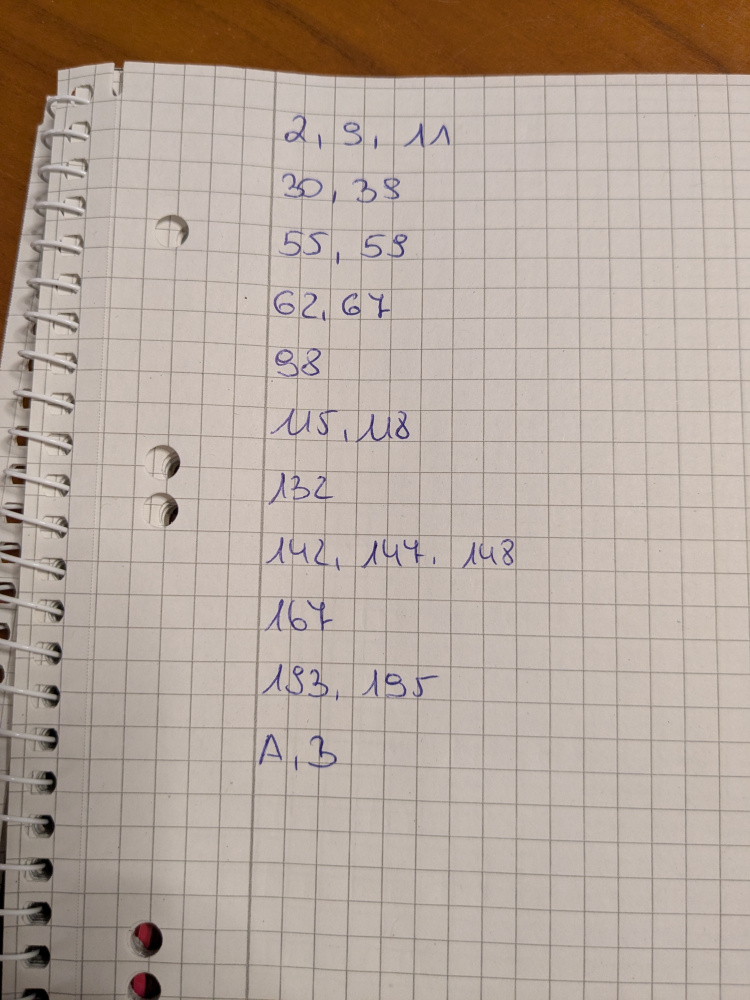 2, 9, 11
30, 39
55, 59
62, 67
98
115, 118
132
142, 147, 148
167
193, 195
A, B